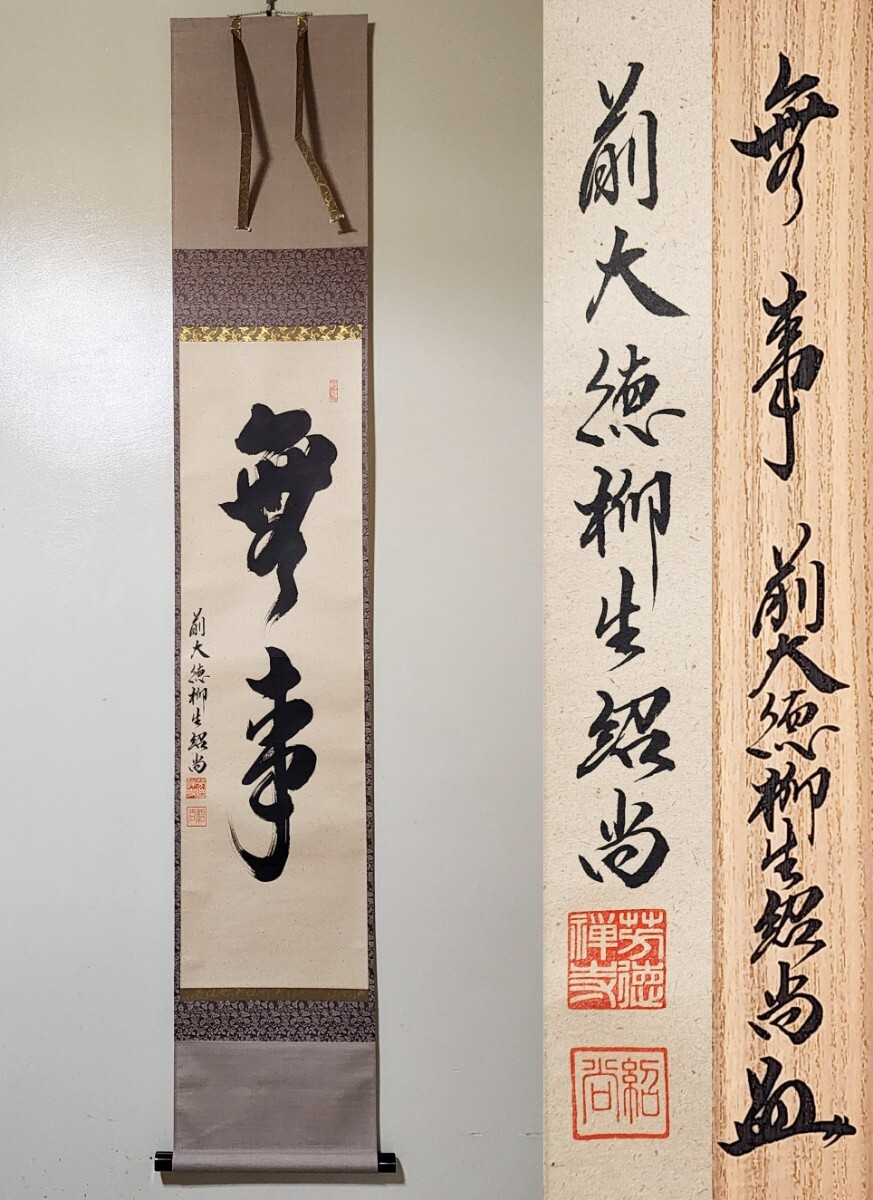 無事
前大徳柳生紹尚
前大徳柳生紹尚
芳徳
禅寺
紹尚
無事
前大徳柳生紹尚